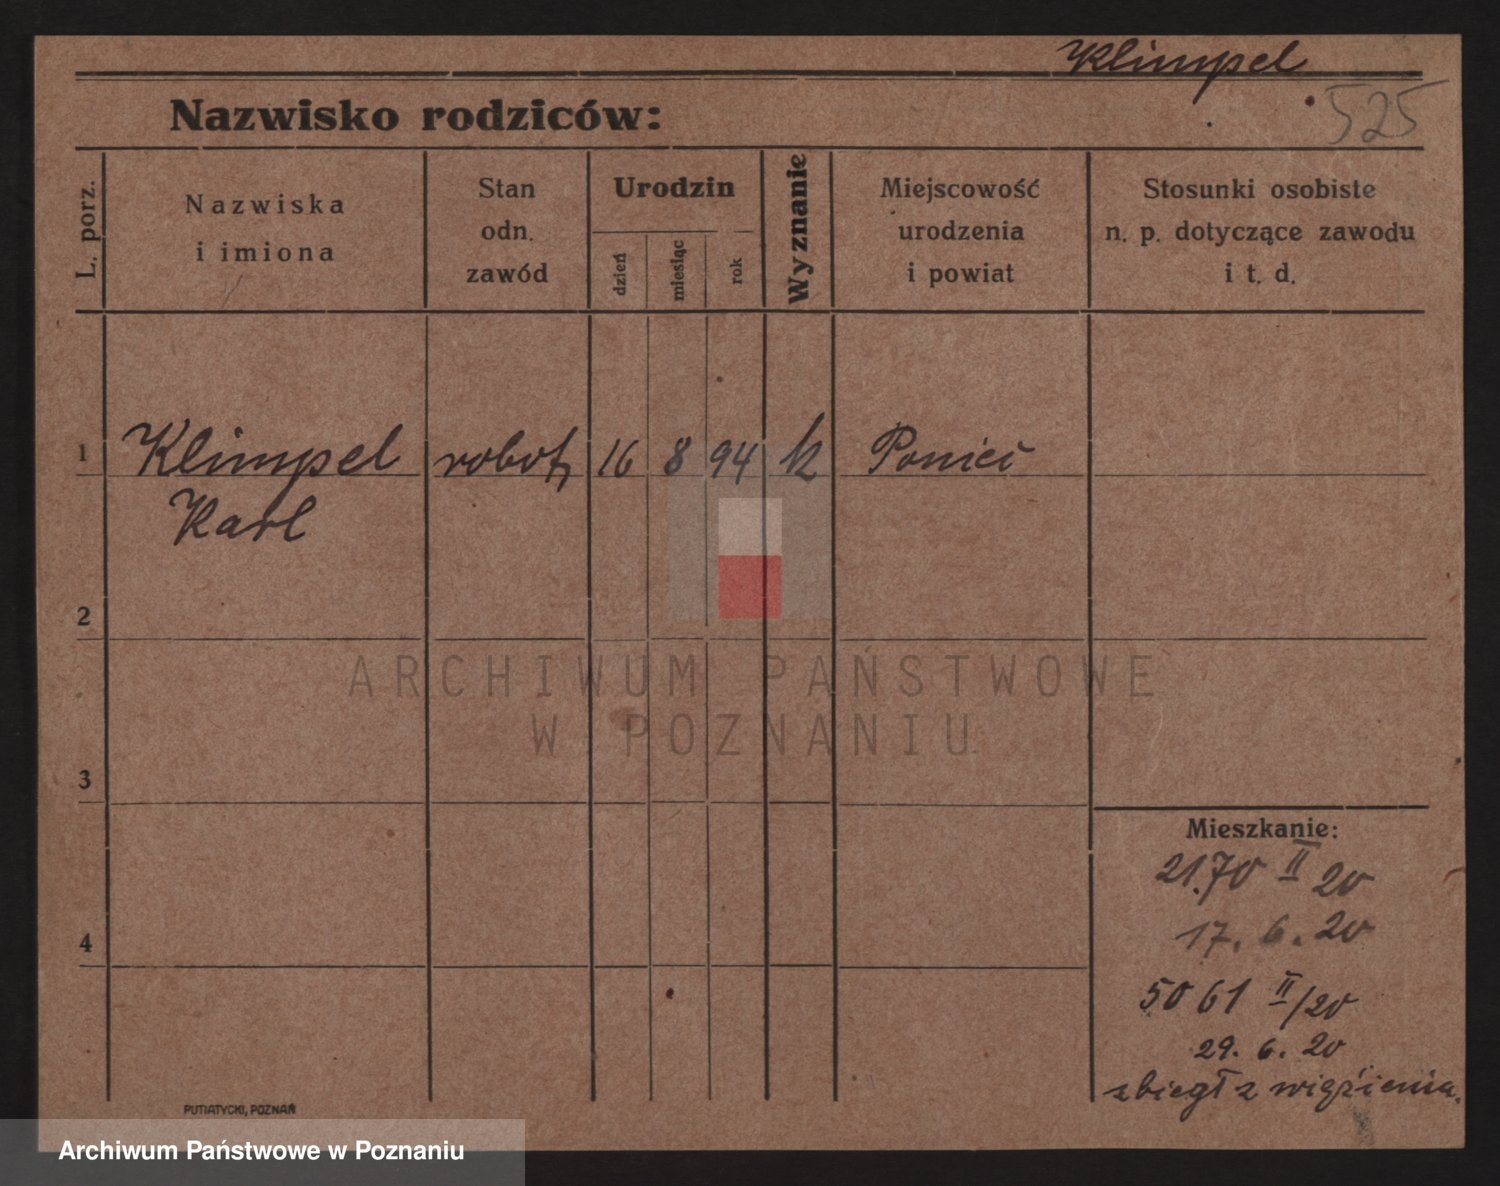 Klimpel
Nazwisko rodziców:
525
L. porz.
Nazwiska
i imiona
Stan
odn.
zawód
Urodzin
dzień
miesiąc
rok
Wyznanie
Miejscowość
urodzenia
i powiat
Stosunki osobiste
n. p. dotyczące zawodu
i t. d.
1
Klimpel
Karl
robot,
16
8
94
k
Ponieć
2
3
4
Mieszkanie:
2170 II 20
17. 6. 20
5061 II/20
29. 6. 20
zbiegł z więzienia.
PUTIATYCKI, POZNAŃ
ARCHIWUM PAŃSTWOWE
W POZNANIU
Archiwum Państwowe w Poznaniu